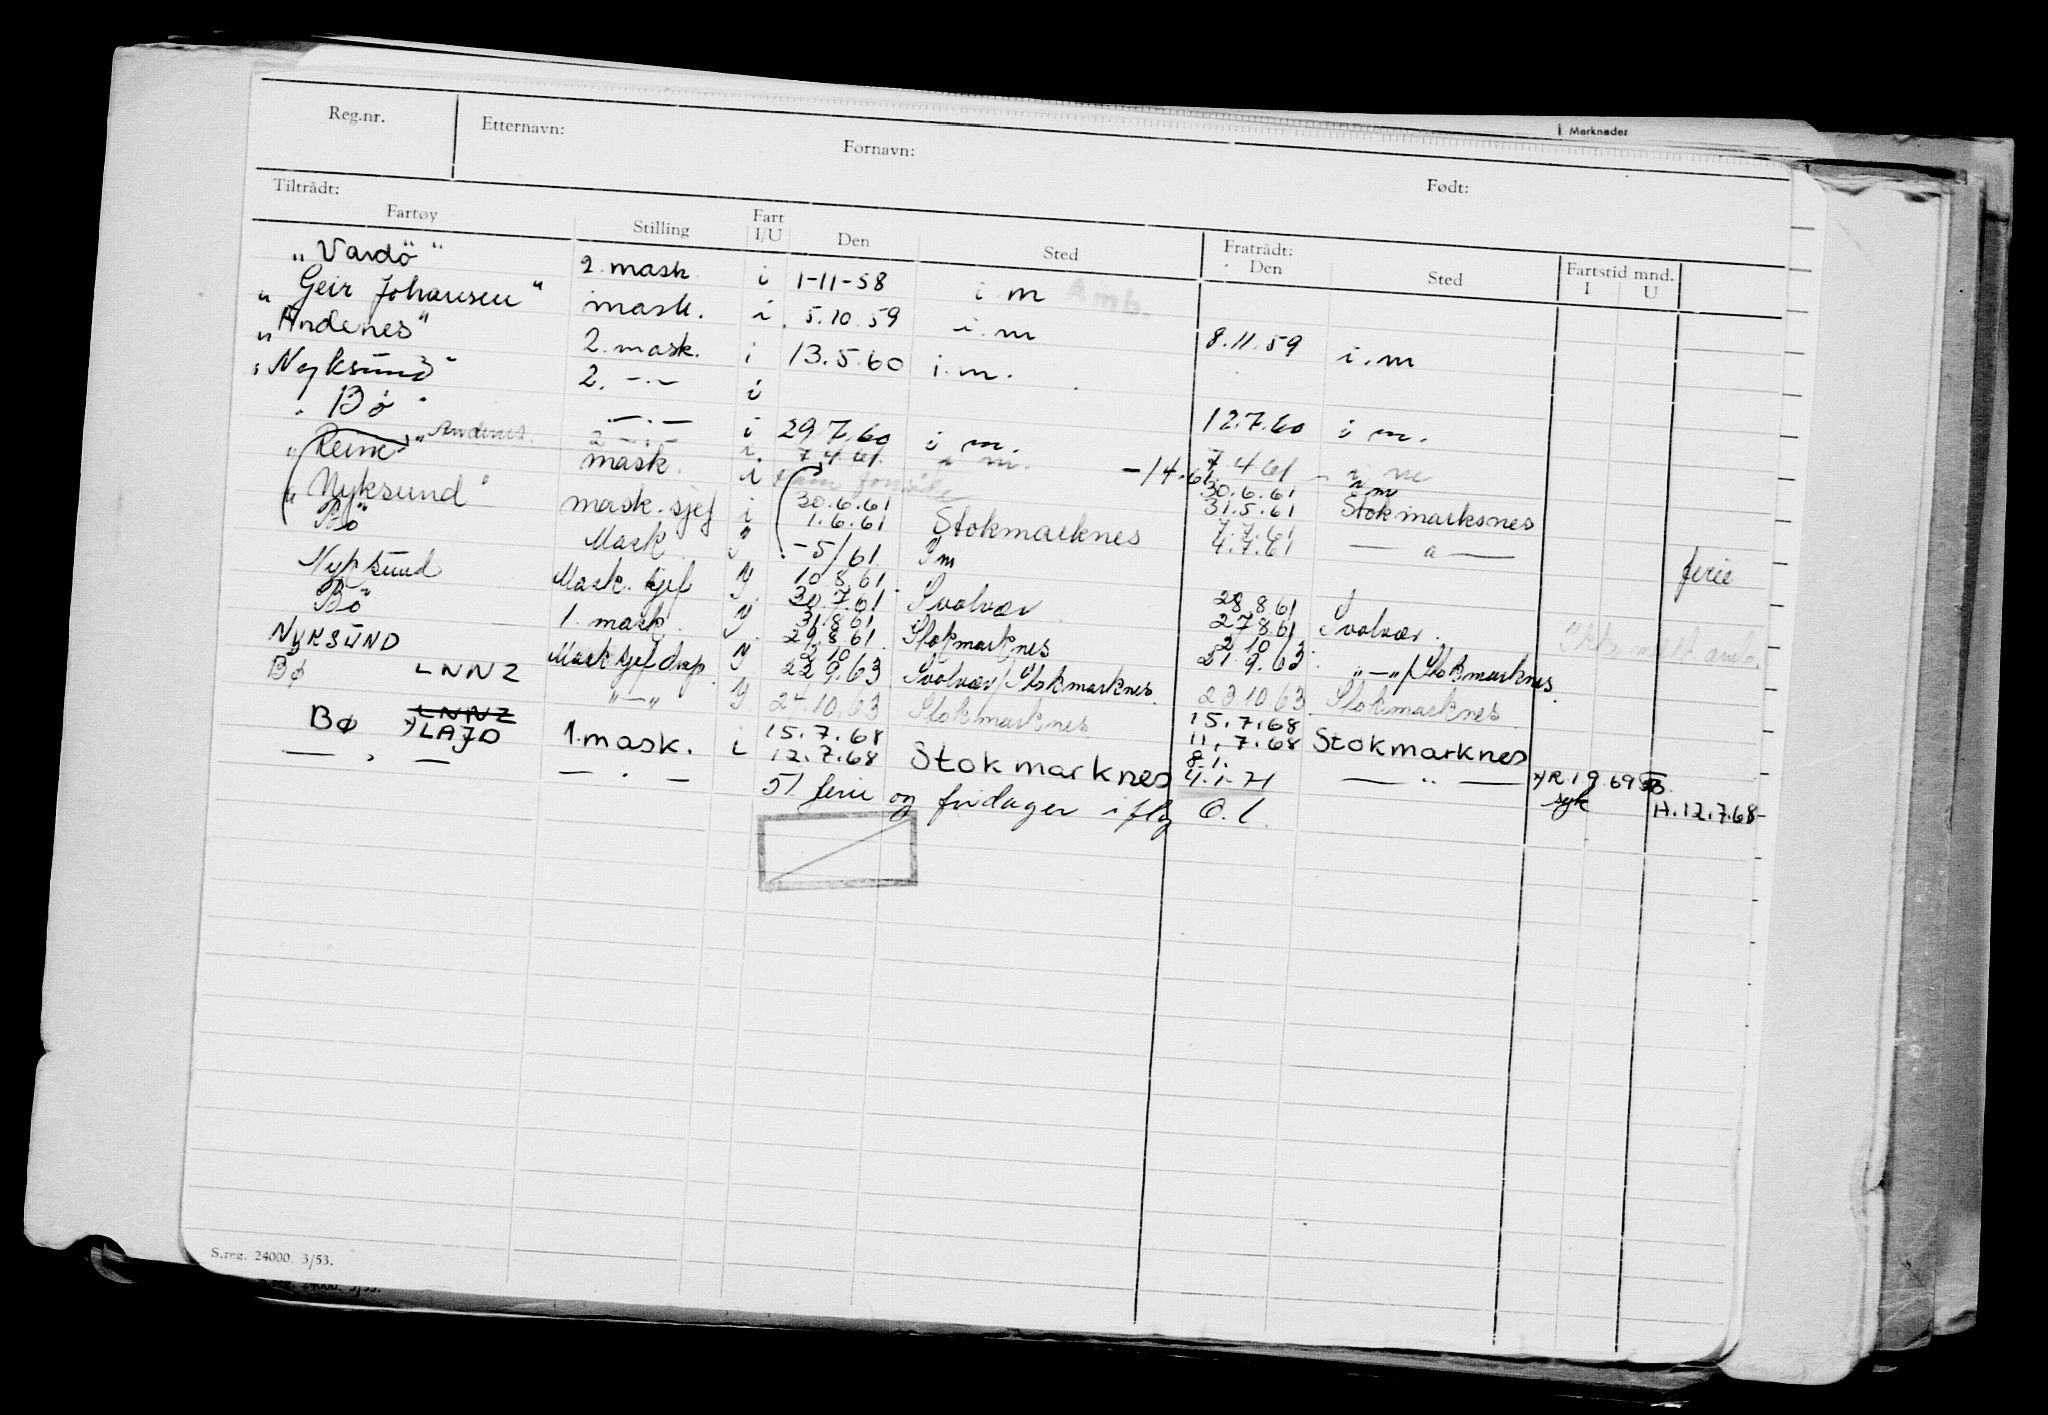 Merknader
Reg.nr. Etternavn: Fornavn: Født:
Tiltrådt: Fratrådt:
Fartøy Stilling Fart I/U Den Sted Den Sted Fartstid mnd. I U
"Vardö" 2. mask i 1-11-58 i m Amb.
"Geir Johansen" mask. i. 5.10.59 i.m 8.11.59 i.m
"Andenes" 2. mask. i 13.5.60 i.m.
"Nyksund" 2. -.- i 12.7.60 i m.
"Bø" -.- i 29.7.60 i m. 7.4.61 - i m
"Reine" Andenes. 2 -.- i. 7.4.61. i m. -14.61. 30.6.61 i m
mask. i
"Nyksund" mask. sjef i 30.6.61 31.5.61 Stokmarksnes
Bö" Mask 1.6.61 Stokmarknes 7.7.61
-5/61 Im 4.7.61 — a — ferie
Nyksund Mask. sjef 10.8.61
Bö 1. mask 30.7.61 Svolvær 28.8.61
31.8.61 27.8.61 Svolvær
NYKSUND 29.8.61. Stokmarknes 2 10 Ikke
BØ LNNZ 2 10 22 9.63 Svolvær/Stokmarknes 21.9.63 "—"/Stokmarknes
"—" 24.10.63 Stokmarknes 23.10.63 Stokmarknes
BØ LNNZ x) LAJD 1. mask. i 15.7.68 15.7.68
12.7.68 Stokmarknes 11.7.68 Stokmarknes
— " — — . — 8.1. 4.1.71 — " — x) R. 1.9.69
51 ferie og fridager iflg O.l. syk H.12.7.68
S.reg. 24000. 3/53.